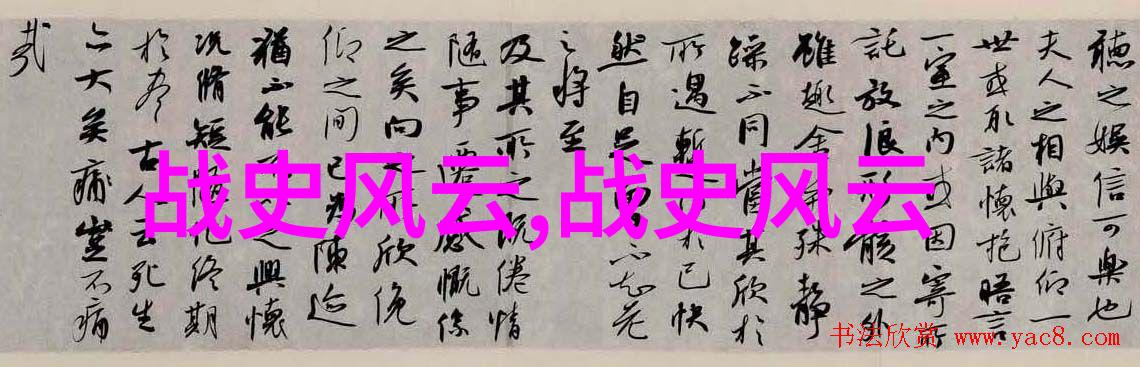 聽之娛信可樂也
夫人之相與俯仰一
世或取諸懷抱晤言
一室之内或因寄所
託放浪形骸之外
雖趣舍殊靜
躁不同當其欣於
所遇暫於己快
然自足不知老
之將至
及其所之既倦情
隨事遷感慨係
之矣向之所欣俛
仰之間已為陳迹
猶不能不之興懷
況脩短隨化終期
於盡古人云死生
亦大矣痛豈不痛
哉
战史风云,战史风云
书法欣赏 www.yac8.com